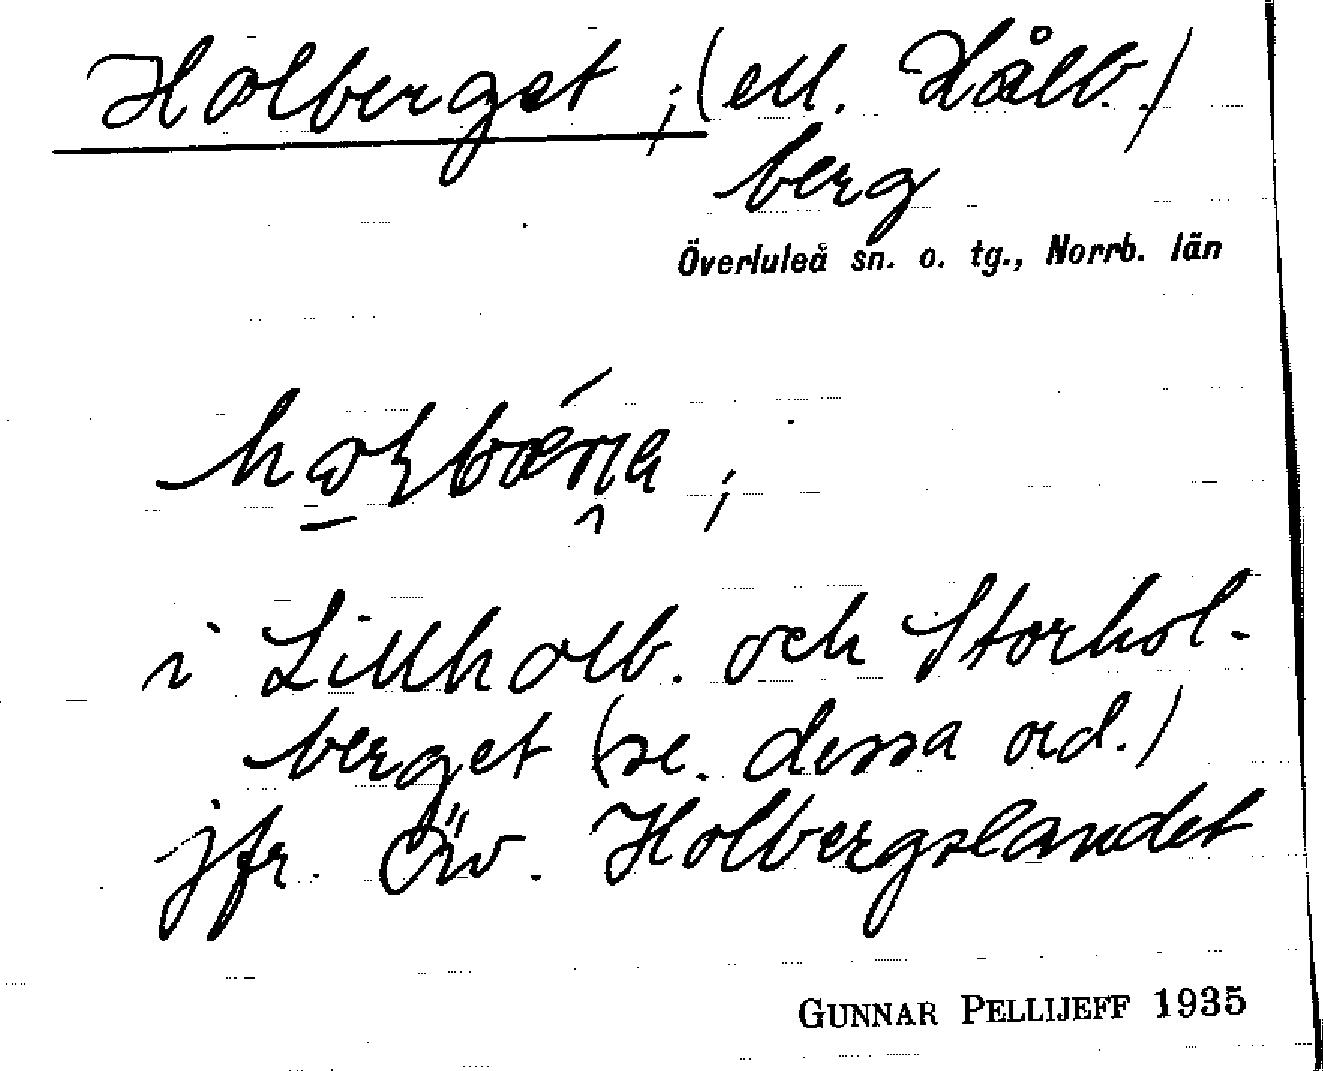 Holberget ; (ell. Hålb.)
berg
Överluleå sn. o. tg., Norrb. län
i Lillholb. och Storhol-
berget (se. dessa ord.)
jfr. Öv. Holbergslandet
GUNNAR PELLIJEFF 1935